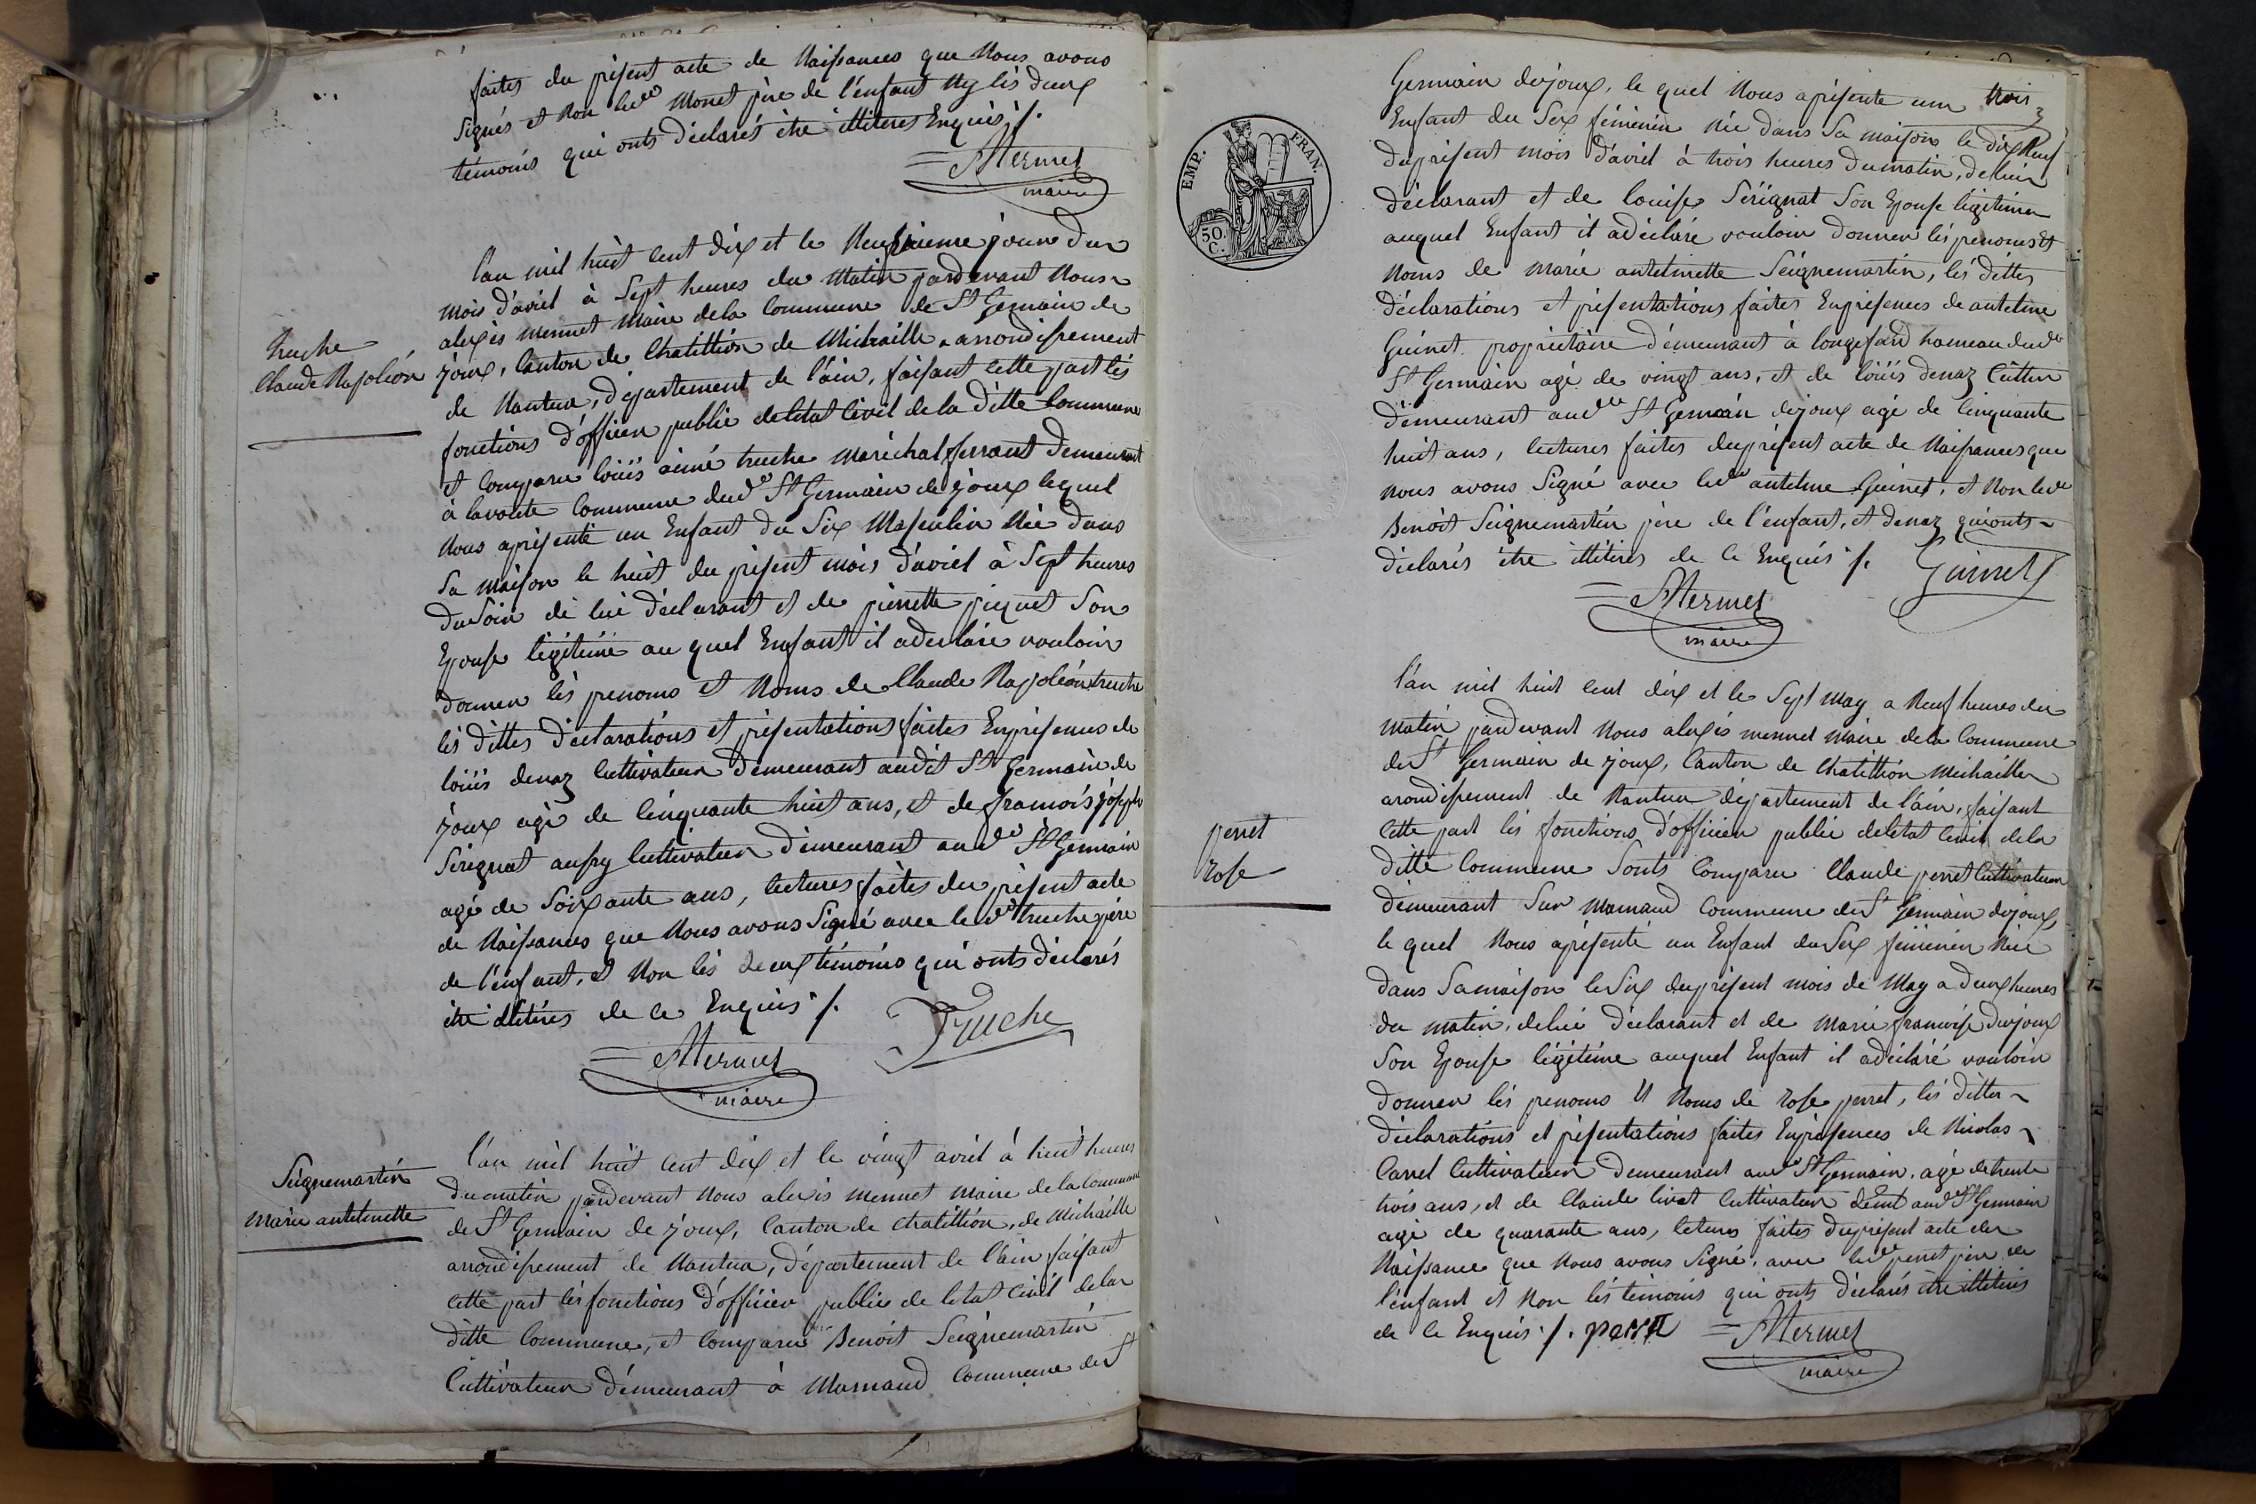 faites du présent acte de Naissances que Nous avons
Signés et Non ledit Monet père de l'enfant Ny lés deux
témoins qui onts déclarés être illitérés Enquis ./.
AMermet
maire
l'an mil huit cent dix et le Neufvieme jour du
mois d'avril à Sept heures du Matin pardevant Nous
alexis mermet Maire dela Commune de St Germain de
truche
Claude Napoléon
joux, Canton de Chatillion de Michaille arrondissement
de Nantua, département de l'ain, faisant cette part lés
fonctions d'officier public deletat Civil de la ditte Commune
et Comparu loüis aimé truche maréchal ferrant Demeurant
à lavoute Commune dud St Germain de joux lequel
Nous apresenté un Enfant du Sex Masculin Née dans
Sa maison le huit du présent mois d'avril à Sept heures
du Soir de lui déclarant et de pierrette piquet Son
Epouse légitime au quel Enfant il adeclaré vouloir
donner lés prenoms et Noms de Claude Napoléon truche
lés dittes déclarations et présentations faites Enprésences de
loüis denaz Cultivateur demeurant audit St Germain de
joux agé de Cinquante huit ans, et de francois joseph
Serignat aussy Cultivateur demeurant aud St Germain
agé de Soixante ans, lectures faites du présent acte
de Naissances que Nous avons Signé avec led truche père
de l'enfant, et Non lés deux témoins qui onts déclarés
être illitérés de ce Enquis ./.
Truche
AMermet
maire
Seignemartin
marie antelmette
l'an mil huit cent dix et le vingt avril à huit heures
du matin pardevant Nous alexis mermet maire de la Commune
de St Germain de joux, Canton de chatillion, de Michaille
arrondissement de Nantua, département de l'ain faisant
Cette part lés fonctions d'officier public de letat Civil dela
ditte Commune, et Comparu Benoit Seignemartin
Cultivateur démeurant à Marnaud Commune de St
EMP. FRAN.
50.
C.
Germain dejoux, le quel Nous apésente un
Enfant du Sex féminin Née dans Sa maison le dix Neuf
duprésent mois d'avril à trois heures dumatin, de lui
déclarant et de louise Sérignat Son Epouse légitime
auquel Enfant il adéclaré vouloir donner lés prenoms et
Noms de marie antelmette Seignemartin, lés dittes
déclarations et présentations faites Enprésences de antelme
Guinet propriétaire démeurant à longefand hameau dud
St Germain agé de vingt ans, et de loüis denaz Cultiv
démeurant aud St Germain dejoux agé de Cinquante
huit ans, lectures faites duprésent acte de Naissances que
nous avons Signé avec led antelme Guinet, et Non led
Benoit Seignemartin père de l'enfant, et denaz qui onts
déclarés être illitérés de ce Enquis ./.
Guinet
AMermet
maire
l'an mil huit cent dix et le Sept may a Neuf heures du
matin pardevant Nous alexis mermet Maire dela Commune
de St Germain de joux, Canton de Chatillion Michaille
arondissement de Nantua département de l'ain, faisant
perret
rose
Cette part lés fonctions d'officier public deletat Civil dela
ditte Commune Sonts Comparu Claude perret Cultivateur
demeurant Sur Marnaud Commune de St Germain dejoux
le quel Nous apésenté un Enfant du Sex féminin Née
dans Samaison le Six duprésent mois de May a deux heures
du matin, delui déclarant et de marie francoise dujoux
Son Epouse légitime auquel Enfant il adéclaré vouloir
donner lés prenoms et Noms de rose perret, lés dittes
déclarations et présentations faites Enprésences de Nicolas
Carrel Cultivateur demeurant aud St Germain, agé de trente
trois ans, et de Claude livet Cultivateur demt aud St Germain
agé de quarante ans, lectures faites duprésent acte de
Naissance que Nous avons Signé, avec led perret père de
l'enfant et Non lés témoins qui onts déclarés être illitérés
de ce Enquis ./. perret
AMermet
maire